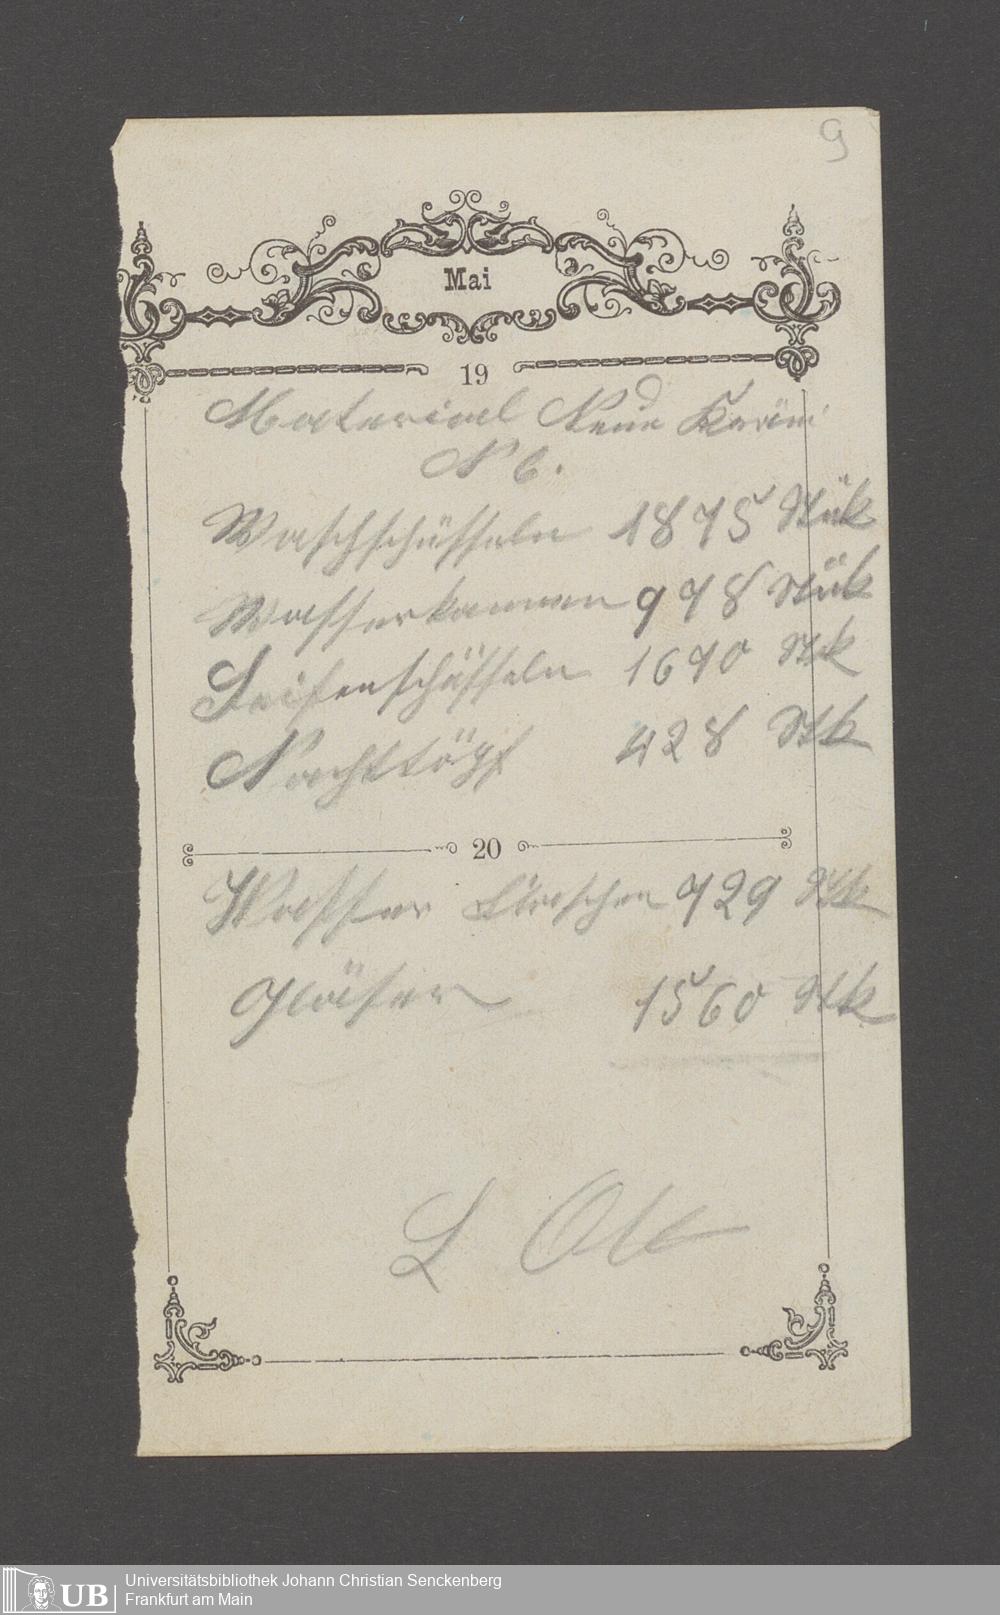 9
Mai
19
Material Neue Kräm
N 6.
Waschschüsseln 1875 Stük
Wasserkannen 978 Stük
Seifenschüsseln 1670 Stk
Nachttöpf 428 Stk
20
Wasser flaschen 729 Stk
Gläser 1560 Stk
L Ott
UB
Universitätsbibliothek Johann Christian Senckenberg
Frankfurt am Main